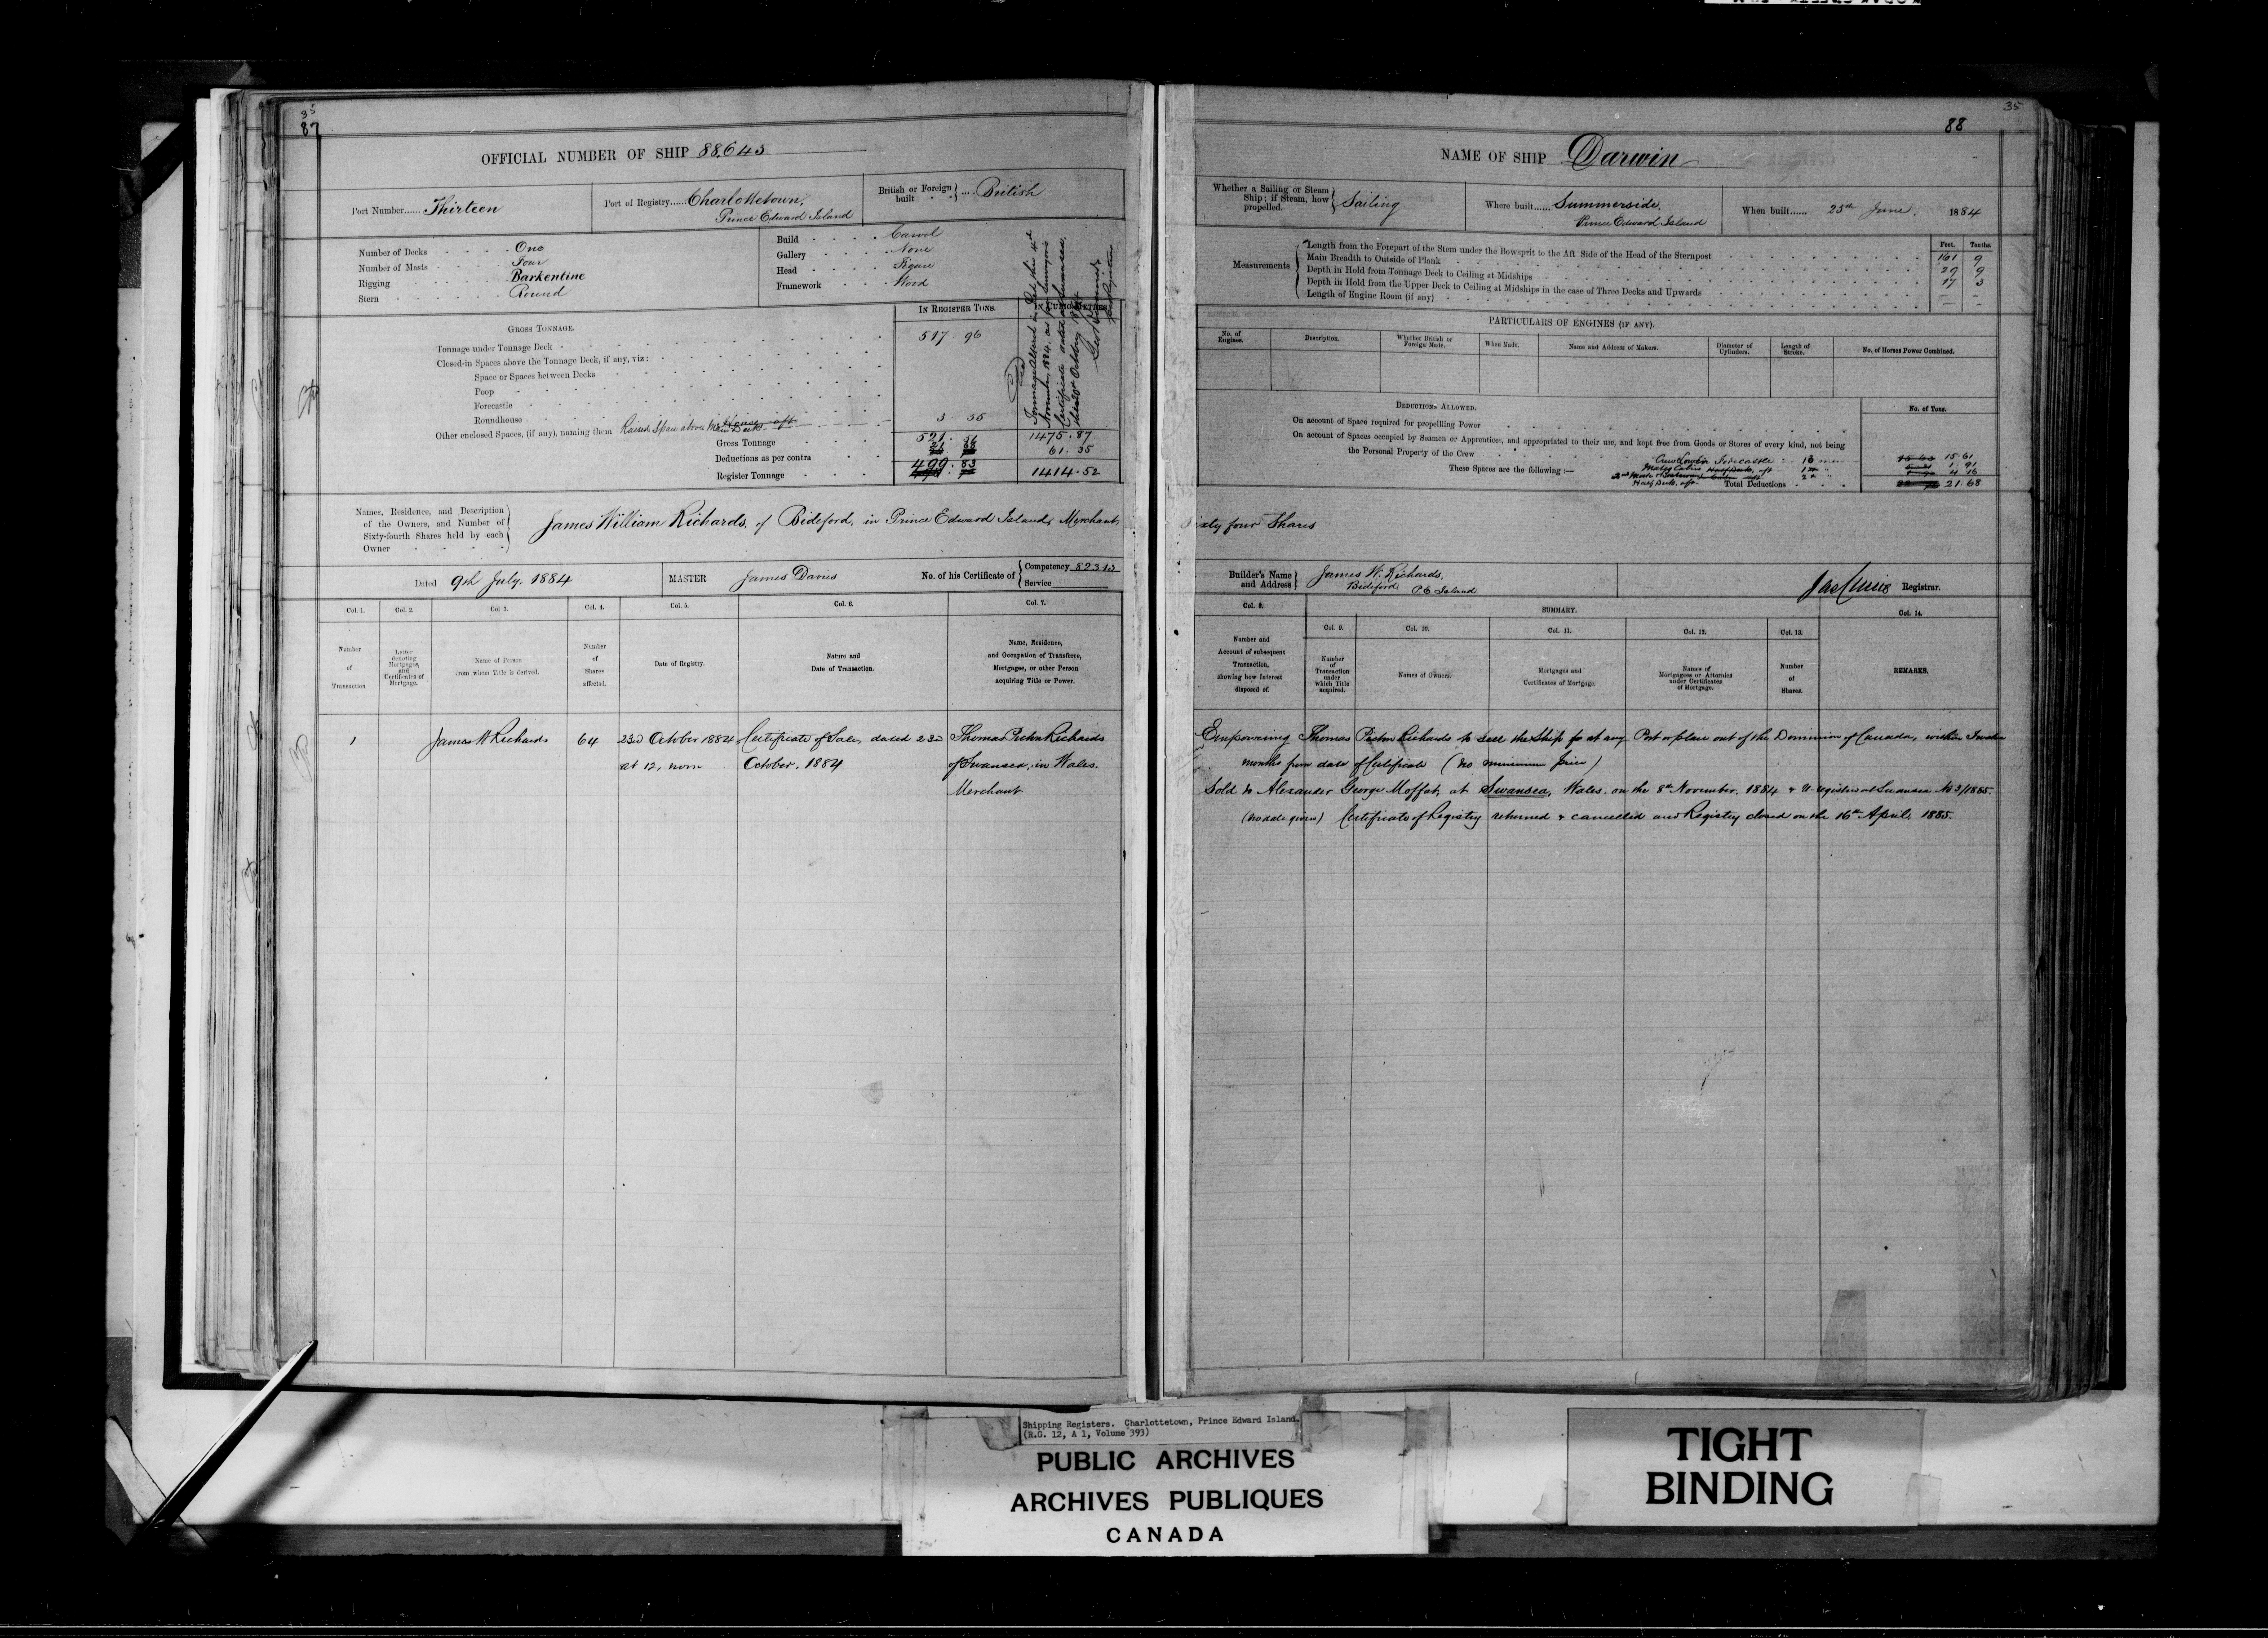 35
87
OFFICIAL NUMBER OF SHIP 88,643
Port Number...... Thirteen
Port of Registry...... Charlottetown,
Prince Edward Island
British or Foreign built .... British
Number of Decks One
Number of Masts Four
Rigging Barkentine
Stern Round
Build Carvel
Gallery None
Head Figure
Framework Wood
GROSS TONNAGE.
IN REGISTER TONS.
IN CUBIC METRES
Tonnage under Tonnage Deck 517 96
Closed-in Spaces above the Tonnage Deck, if any, viz:
Space or Spaces between Decks
Poop
Forecastle
Roundhouse
Other enclosed Spaces, (if any), naming them 3 55
Gross Tonnage 521 1475.87
Deductions as per contra 61.35
Register Tonnage 499.83 1414.52
Names, Residence, and Description
of the Owners, and Number of
Sixty-fourth Shares held by each
Owner
James William Richards, of Bideford, in Prince Edward Island, Merchant,
Dated 9th July, 1884
MASTER James Davies
No. of his Certificate of
Competency 82313
Service
Col. 1. Col. 2. Col. 3. Col. 4. Col. 5. Col. 6. Col. 7.
Number of Transaction
Letter denoting Mortgages, and Certificates of Mortgage.
Name of Person from whom Title is derived.
Number of Shares affected.
Date of Registry.
Nature and Date of Transaction.
Name, Residence, and Occupation of Transferee, Mortgagee, or other Person acquiring Title or Power.
1 James W Richards 64 23rd October 1884 Certificate of Sale, dated 23rd Thomas Richards
at 12, noon October, 1884 of Swansea, in Wales.
Merchant
35
88
NAME OF SHIP Darwin
Whether a Sailing or Steam Ship; if Steam, how propelled. Sailing
Where built...... Summerside,
Prince Edward Island
When built...... 25th June, 1884
Measurements
Feet. Tenths.
Length from the Forepart of the Stem under the Bowsprit to the Aft Side of the Head of the Sternpost 161 9
Main Breadth to Outside of Plank 29 9
Depth in Hold from Tonnage Deck to Ceiling at Midships 17 3
Depth in Hold from the Upper Deck to Ceiling at Midships in the case of Three Decks and Upwards – –
Length of Engine Room (if any) – –
PARTICULARS OF ENGINES (IF ANY).
No. of Engines.
Description.
Whether British or Foreign Made.
When Made.
Name and Address of Makers.
Diameter of Cylinders.
Length of Stroke.
No. of Horses Power Combined.
DEDUCTIONS ALLOWED.
No. of Tons.
On account of Space required for propelling Power
On account of Spaces occupied by Seamen or Apprentices, and appropriated to their use, and kept free from Goods or Stores of every kind, not being
the Personal Property of the Crew
These Spaces are the following :—
Forecastle 15.61
1.91
4 16
Total Deductions 21.68
Sixty four Shares
Builder's Name and Address James W. Richards,
Bideford, P.E Island
Registrar.
Col. 8.
SUMMARY.
Col. 9. Col. 10. Col. 11. Col. 12. Col. 13. Col. 14.
Number and Account of subsequent Transaction, showing how Interest disposed of.
Number of Transaction under which Title acquired.
Names of Owners.
Mortgages and Certificates of Mortgage.
Names of Mortgagees or Attornies under Certificates of Mortgage.
Number of Shares.
REMARKS.
Empowering Thomas Richards to sell the Ship at any Port or place out of the Dominion of Canada, within Twelve
months from date of Certificate (No minimum price)
Sold to Alexander George Moffat, at Swansea, Wales. on the 8th November, 1884 & Re-registered at Swansea No 3/1885.
(no date given) Certificate of Registry returned & cancelled and Registry closed on the 16th April, 1885.
Shipping Registers. Charlottetown, Prince Edward Island.
(R.G. 12, A 1, Volume 393)
PUBLIC ARCHIVES
ARCHIVES PUBLIQUES
CANADA
TIGHT
BINDING